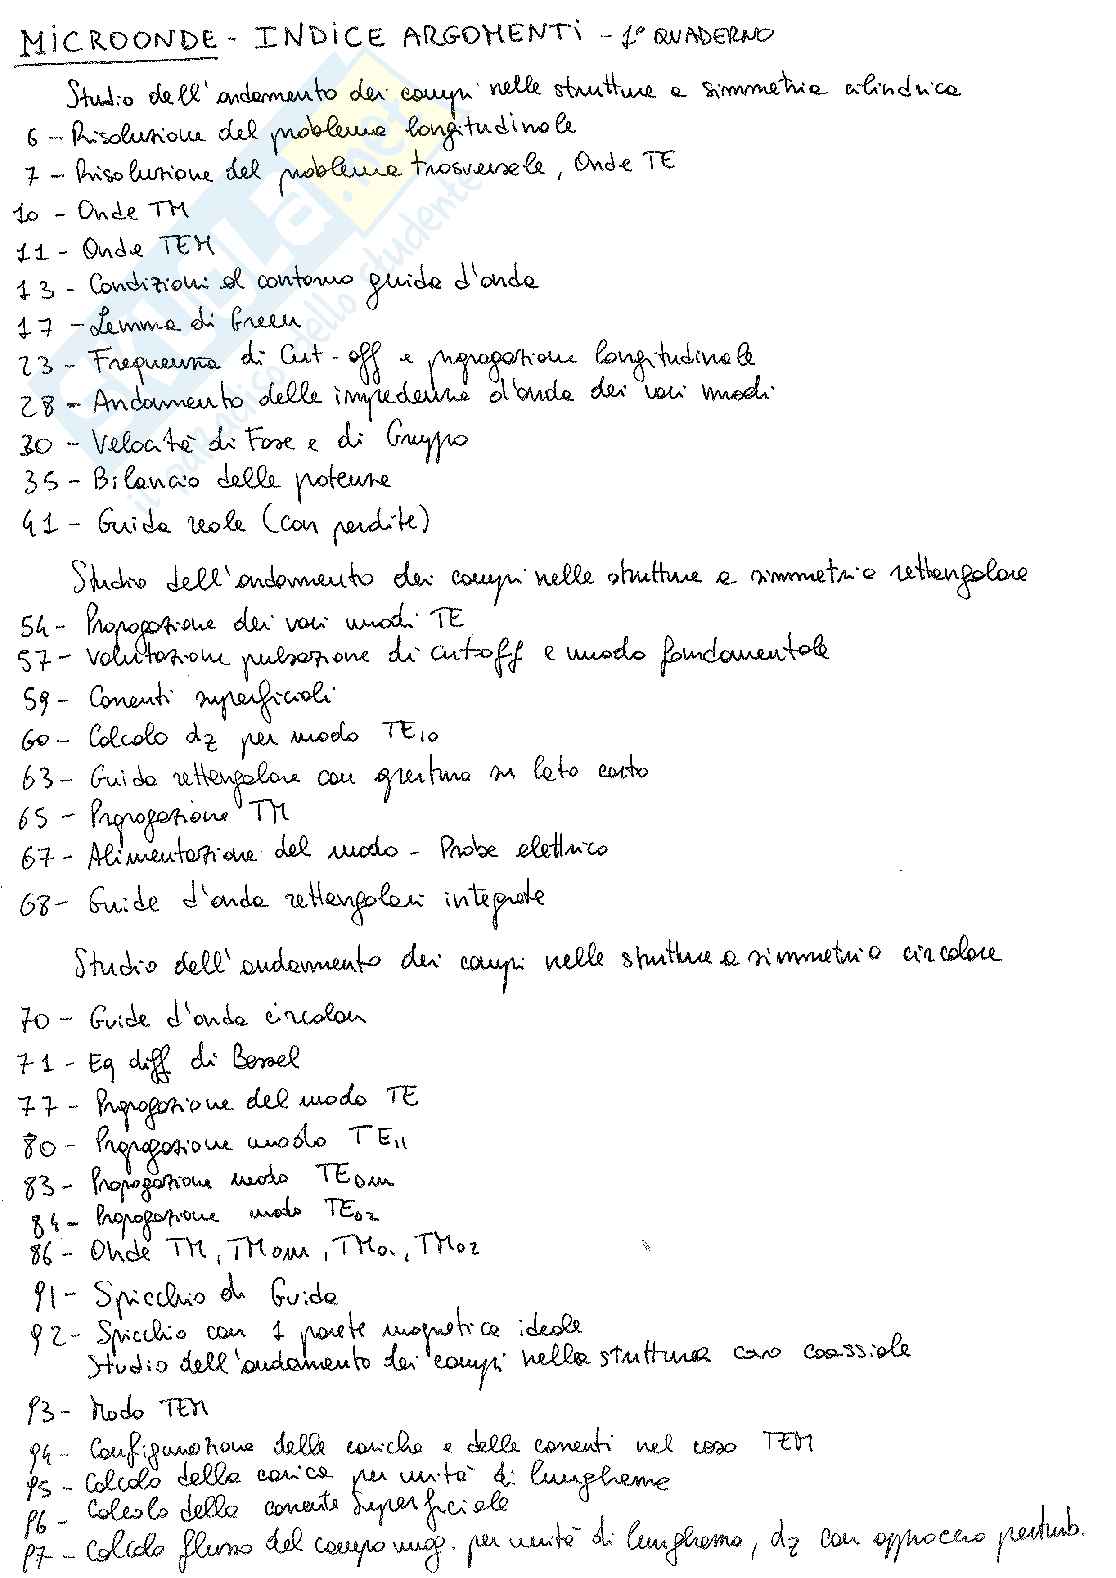 MICROONDE - INDICE ARGOMENTI - 1° QUADERNO
Studio dell'andamento dei campi nelle strutture a simmetria cilindrica
6 - Risoluzione del problema longitudinale
7 - Risoluzione del problema trasversale, Onde TE
10 - Onde TM
11 - Onde TEM
13 - Condizioni al contorno guida d'onda
17 - Lemma di Green
23 - Frequenza di Cut-off e propagazione longitudinale
28 - Andamento delle impedenze d'onda dei vari modi
30 - Velocità di Fase e di Gruppo
35 - Bilancio delle potenze
41 - Guida reale (con perdite)
Studio dell'andamento dei campi nelle strutture a simmetria rettangolare
54 - Propagazione dei vari modi TE
57 - Valutazione pulsazione di cutoff e modo fondamentale
59 - Correnti superficiali
60 - Calcolo αz per modo TE10
63 - Guida rettangolare con apertura su lato corto
65 - Propagazione TM
67 - Alimentazione del modo - Probe elettrico
68 - Guide d'onda rettangolari integrate
Studio dell'andamento dei campi nelle strutture a simmetria circolare
70 - Guide d'onda circolari
71 - Eq diff di Bessel
77 - Propagazione del modo TE
80 - Propagazione modo TE11
83 - Propagazione modo TE0m
84 - Propagazione modo TE02
86 - Onde TM, TM0m, TM01, TM02
91 - Spicchio di Guida
92 - Spicchio con 1 parete magnetica ideale
Studio dell'andamento dei campi nella struttura cavo coassiale
93 - Modo TEM
94 - Configurazione delle cariche e delle correnti nel caso TEM
95 - Calcolo della carica per unità di lunghezza
96 - Calcolo della corrente superficiale
97 - Calcolo flusso del campo mag. per unità di lunghezza, αz con approccio perturb.